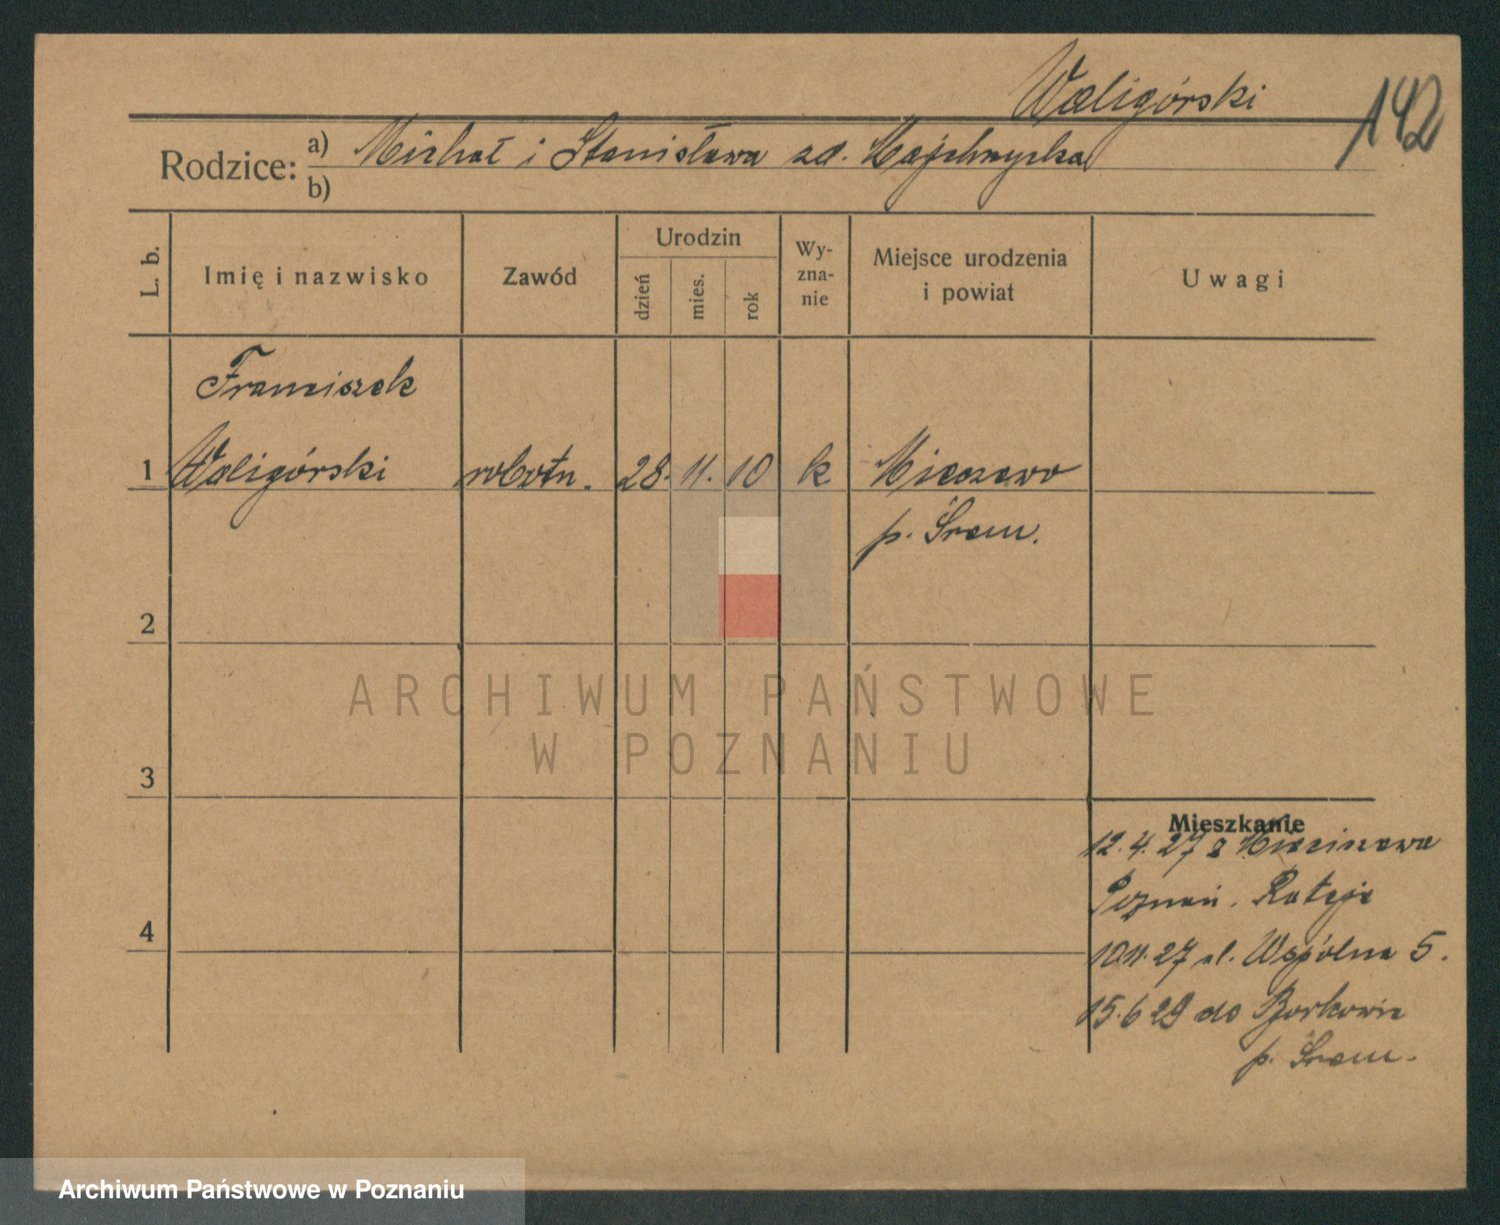 Waligórski
142
Rodzice: a) Michał i Stanisława zd. Majchrzycka
b)
L. b.
Imię i nazwisko
Zawód
Urodzin
dzień
mies.
rok
Wy-
zna-
nie
Miejsce urodzenia
i powiat
Uwagi
Franciszek
1 Waligórski robotn. 28. 11. 10 k Mieczewo
p. Śrem.
2
ARCHIWUM PAŃSTWOWE
W POZNANIU
3
Mieszkanie
12.4.27 z
4
Poznań. Rataje
10.11.27 ul. Wspólna 5.
15.6.29 do Borkowic
p. Śrem.
Archiwum Państwowe w Poznaniu